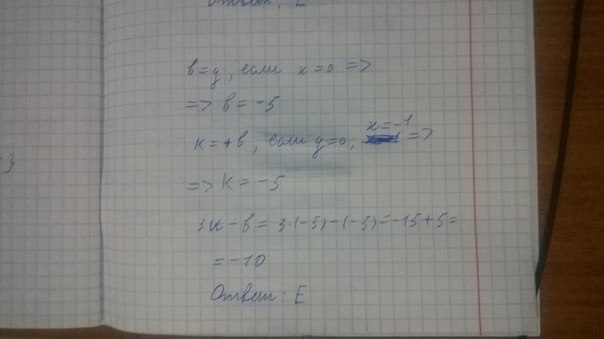 Ответ: E
в=y, если x=0 =>
=> в= -5
к=+в, если y=0, x=-1 =>
=> к= -5
3к-в= 3·(-5)-(-5)=-15+5=
=-10
Ответ: E